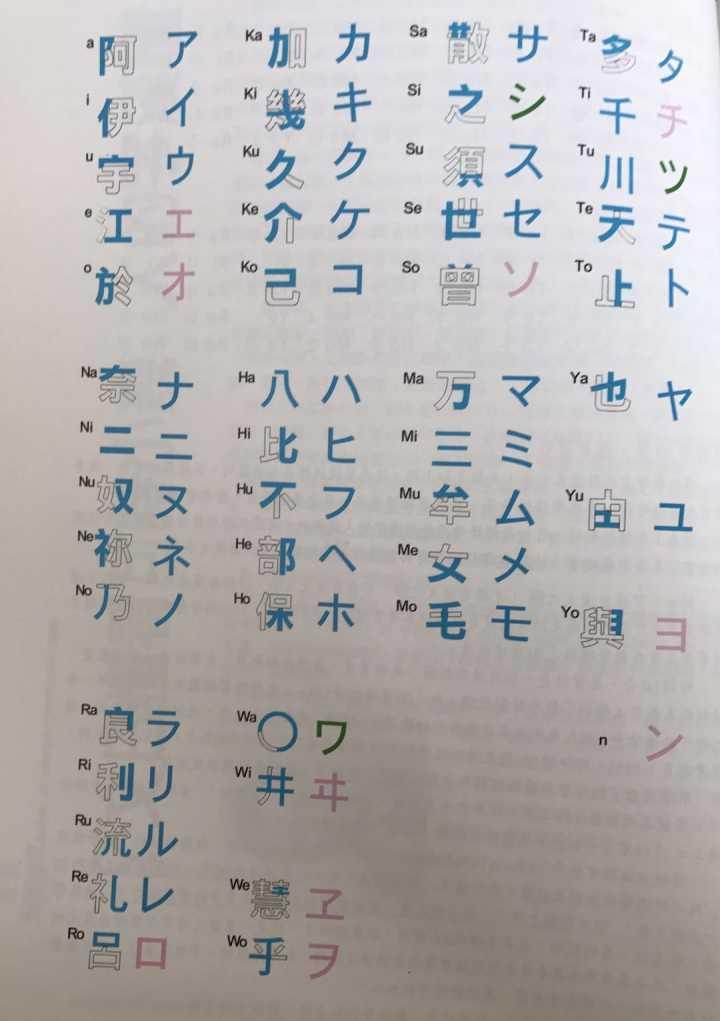 a 阿 ア Ka 加 カ Sa 散 サ Ta 多 タ
i 伊 イ Ki 幾 キ Si 之 シ Ti 千 チ
u 宇 ウ Ku 久 ク Su 須 ス Tu 川 ツ
e 江 エ Ke 介 ケ Se 世 セ Te 天 テ
o 於 オ Ko 己 コ So 曽 ソ To 止 ト
Na 奈 ナ Ha 八 ハ Ma 万 マ Ya 也 ヤ
Ni 二 ニ Hi 比 ヒ Mi 三 ミ
Nu 奴 ヌ Hu 不 フ Mu 牟 ム Yu 由 ユ
Ne 祢 ネ He 部 ヘ Me 女 メ
No 乃 ノ Ho 保 ホ Mo 毛 モ Yo 與 ヨ
Ra 良 ラ Wa 〇 ワ n ン
Ri 利 リ Wi 井 ヰ
Ru 流 ル
Re 礼 レ We 慧 ヱ
Ro 呂 ロ Wo 乎 ヲ